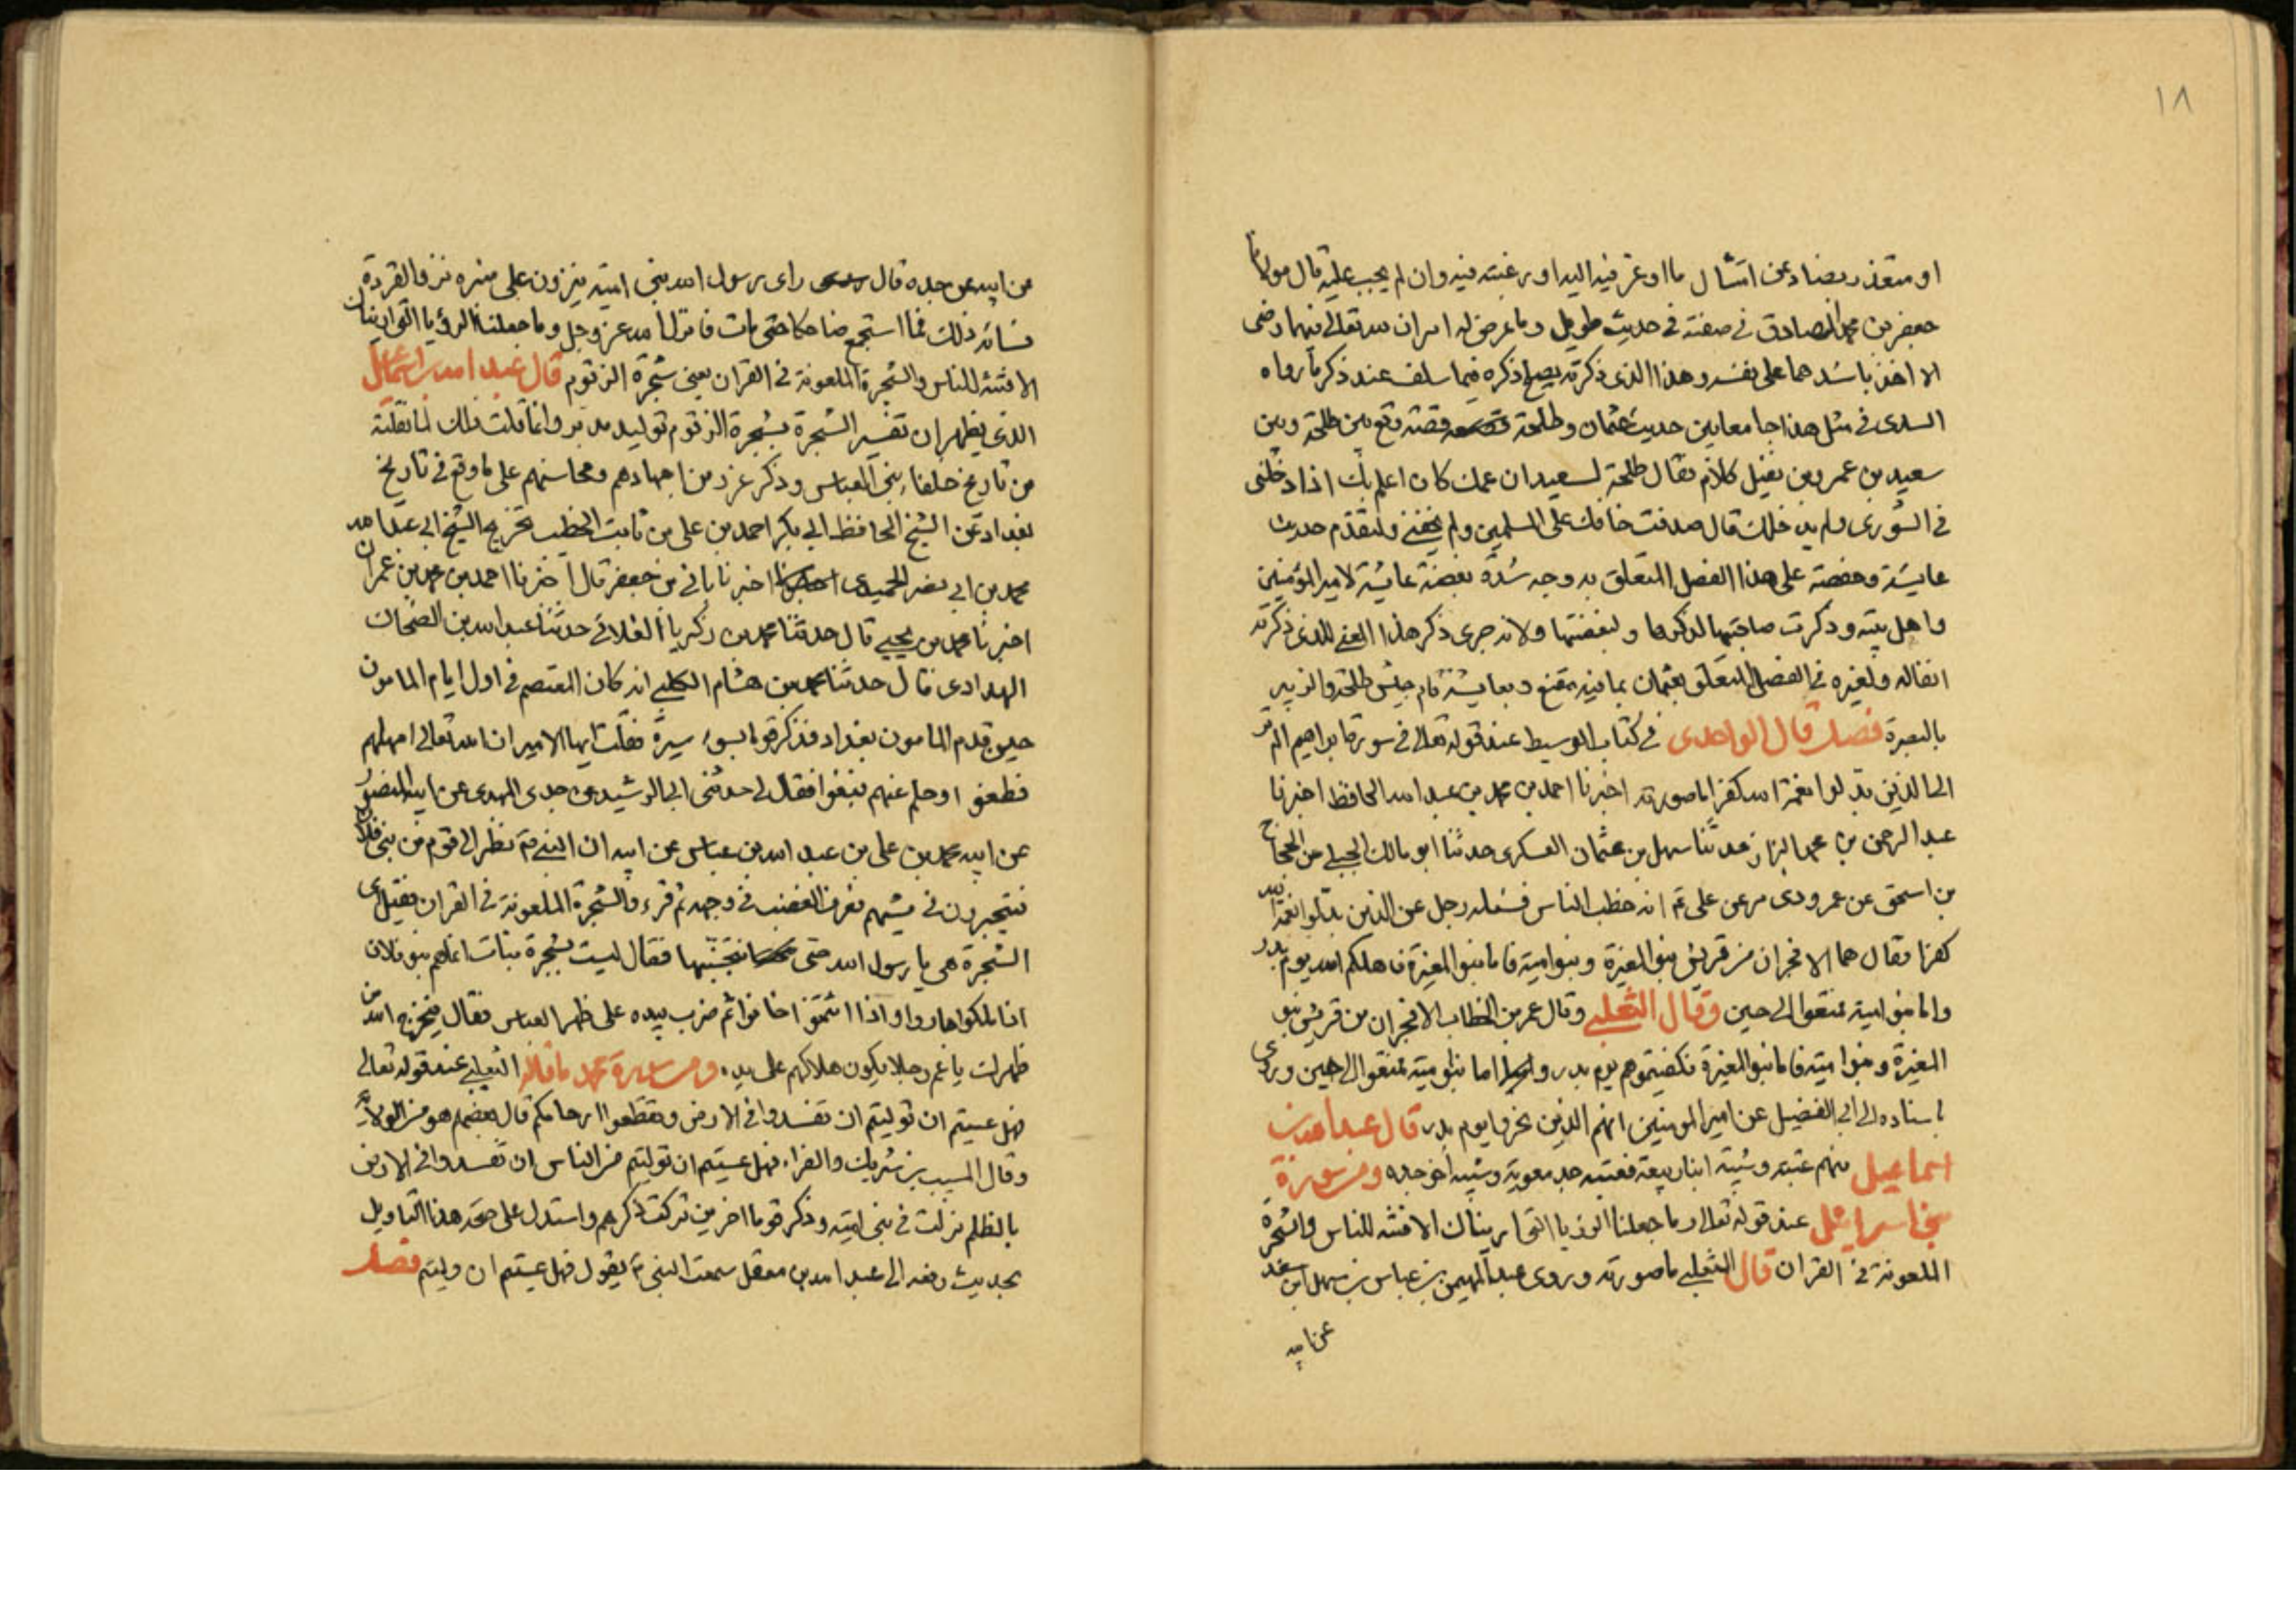 ١٨
او متعذر بضاد عن امتثال ما اوعز فيه اليه او رغبته فيه وان لم يجب عليه قال مولانا
جعفر بن محمد الصادق في صفته في حديث طويل وما عرض له امران لله تعالى فيهما رضى
الا اخذ باشدهما على نفسه وهذا الذي ذكرته يصلح ذكره فيما سلف عند ذكر ما رواه
السدى في مثل هذا جامعا بين حديث عثمان وطلحة قصة وقع بين طلحة وبين
سعيد بن عمرو بن نفيل كلام فقال طلحة لسعيد ان عمك كان اعلم بك اذ ادخلني
في الشورى ولم يدخلك قال صدقت خافك على المسلمين ولم يخفني وليقدم حديث
عايشة وحفصة على هذا الفصل المتعلق به وجه شدة بغضة عايشة لامير المؤمنين
واهل بيته وذكرت صاحبتها لذكرها ولبغضتها ولانه جرى ذكر هذا المعنى للذي ذكرته
انفا له ولغيره في الفصل المتعلق بعثمان بما فيه مقنع وبعايشة قام جيش طلحة والزبير
بالبصرة فصل قال الواحدى في كتاب الوسيط عند قوله تعالى في سورة ابراهيم الم تر
الى الذين بدلوا نعمة الله كفرا ما صورته اخبرنا احمد بن محمد بن عبد الله الحافظ اخبرنا
عبد الرحمن بن محمد البزاز حدثنا سهل بن عثمان العسكرى حدثنا ابو مالك الجبلي عن الحجاج
بن اسحق عن عمرو ذى مر عن على ع انه خطب الناس فسئله رجل عن الذين بدلوا نعمة الله
كفرا فقال هما الافجران من قريش بنو المغيرة وبنو امية فاما بنو المغيرة فاهلكم الله يوم بدر
واما بنو امية تمتعوا الى حين وقال الثعلبي وقال عمر بن الخطاب الافجران من قريش بنو
المغيرة وبنو امية فاما بنو المغيرة فكفيتموهم يوم بدر واما بنو امية تمتعوا الى حين وروى
باسناده الى ابي الفضيل عن امير المومنين انهم الذين نحروا يوم بدر قال عبد الله بن
اسماعيل منهم عتبة وشيبة ابنا ربيعة فعتبة جد معوية وشيبة اخو جده ومن سورة
بني اسرائيل عند قوله تعالى وما جعلنا الرؤيا التي اريناك الا فتنة للناس والشجرة
الملعونة في القران قال الثعلبي ما صورته وروى عبد المهيمن بن عباس بن سهل ابن سعد
عن ابيه
عن ابيه عن جده قال راى رسول الله بني امية ينزون على منبره نزو القردة
فسائه ذلك فما استجمع ضاحكا حتى مات فانزل الله عز وجل وما جعلنا الرؤيا التي اريناك
الا فتنة للناس والشجرة الملعونة في القران يعني شجرة الزقوم قال عبد الله بن اسماعيل
الذي يظهر ان تفسير الشجرة بشجرة الزقوم توليد مدبر وانما قلت ذلك لما نقلته
من تاريخ خلفاء بني العباس وذكر غرر من اجهادهم ومحاسنهم على ما وقع في تاريخ
بغداد عن الشيخ الحافظ ابي بكر احمد بن على بن ثابت الخطيب تخريج الشيخ ابي عبد الله
محمد بن ابي نصر الحميدى اخبرنا باني بن جعفر قال اخبرنا احمد بن محمد بن عمران
اخبرنا محمد بن يحيى قال حدثنا محمد بن زكريا الغلائي حدثنا عبد الله بن الضحاك
الهدادى قال حدثنا محمد بن هشام الكلبي انه كان المعتصم في اول ايام المامون
حين قدم المامون بغداد فذكر قوما بسوء سيرة فقلت ايها الامير ان الله تعالى امهلهم
فطغوا وحلم عنهم فبغوا فقال لي حدثني ابي الرشيد عن جدى المهدى عن ابيه المنصور
عن ابيه محمد بن على بن عبد الله بن عباس عن ابيه ان النبي ص نظر الى قوم من بني فلان
فتبخترون في مشيهم فعرف الغضب في وجهه ثم قرء والشجرة الملعونة في القران فقيل اى
الشجرة هى يا رسول الله حتى نجتنبها فقال ليست بشجرة نبات انما هم بنو فلان
اذا ملكوا جاروا واذا ائتمنوا خانوا ثم ضرب بيده على ظهر العباس فقال فيخرج الله من
ظهرك يا عم رجلا يكون هلاكهم على يده ومن سورة محمد ما قاله الثعلبي عند قوله تعالى
فهل عسيتم ان توليتم ان تفسدوا في الارض وتقطعوا ارحامكم قال بعضهم هو من الولاية
وقال المسيب بن شريك والفراء فهل عسيتم ان توليتم من الناس ان تفسدوا في الارض
بالظلم نزلت في بني امية وذكر قوما اخرين تركت ذكرهم واستدل على صحة هذا التاويل
بحديث رفعه الى عبد الله بن مغفل سمعت النبي ص يقول فهل عسيتم ان وليتم فصل